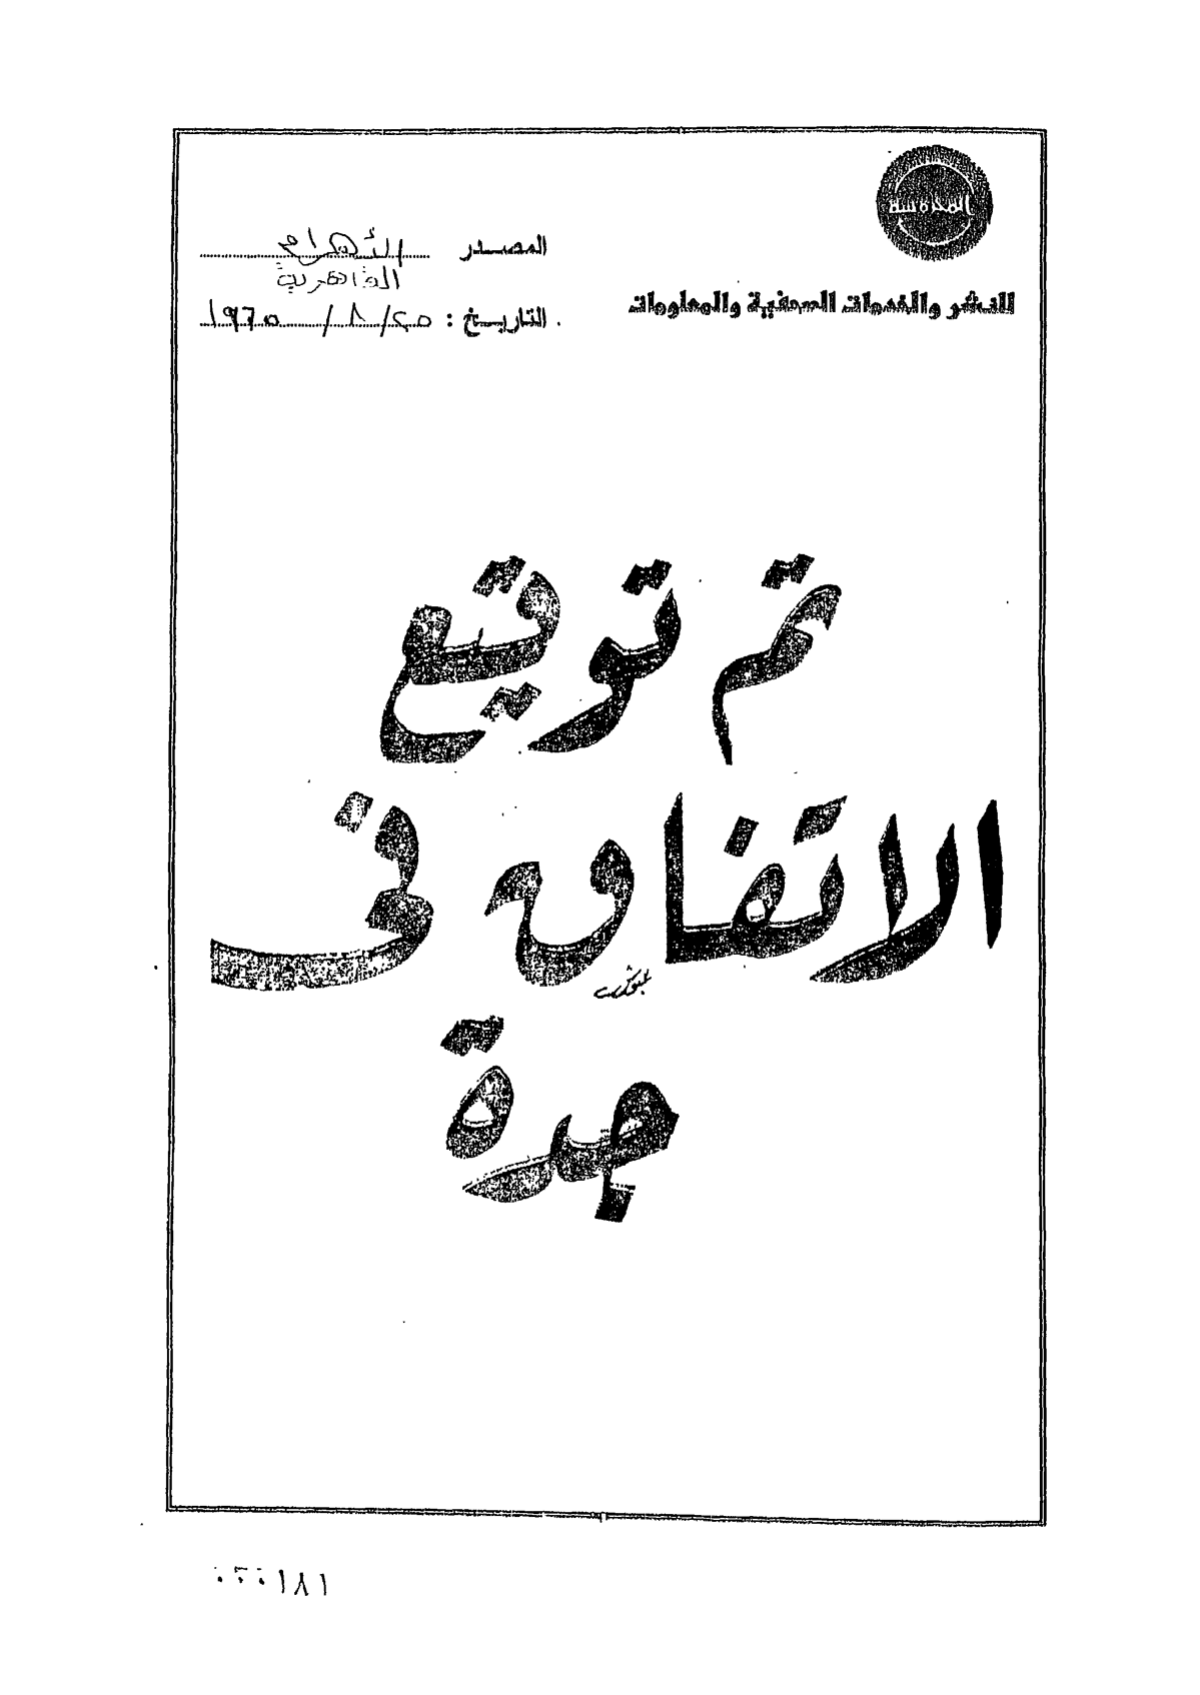 المحروسة
للنشر والخدمات الصحفية والمعلومات
المصدر الأهرام
القاهرية
التاريخ : ٢٥/ ٨ / ١٩٦٥
تم توقيع
الاتفاق فى
جدة
١٨١